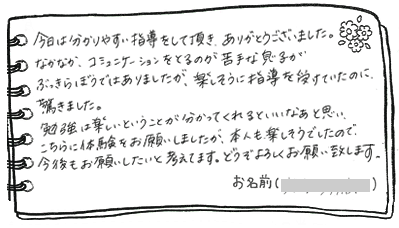 今日は分かりやすい指導をして頂き、ありがとうございました。
なかなか、コミュニケーションをとるのが苦手な息子が
ぶっきらぼうではありましたが、楽しそうに指導を受けていたのに、
驚きました。
勉強は楽しいということが分かってくれるといいなあと思い、
こちらに体験をお願いしましたが、本人も楽しそうでしたので、
今後もお願いしたいと考えてます。どうぞよろしくお願い致します。
お名前( )